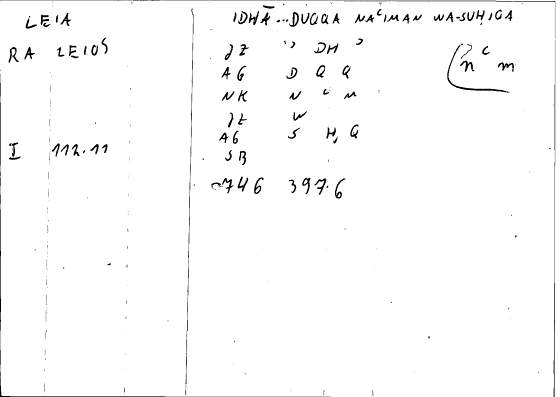 LEIA
RA LEIOS
I 112.11
IDHĀ...DUQQA NAʿIMAN WA-SUḤIGA
JZ ʾ DH ʾ
AG D Q Q
NK N ʿ M
JZ W
AG S Ḥ Q
SB
746 397.6
n ʿ m